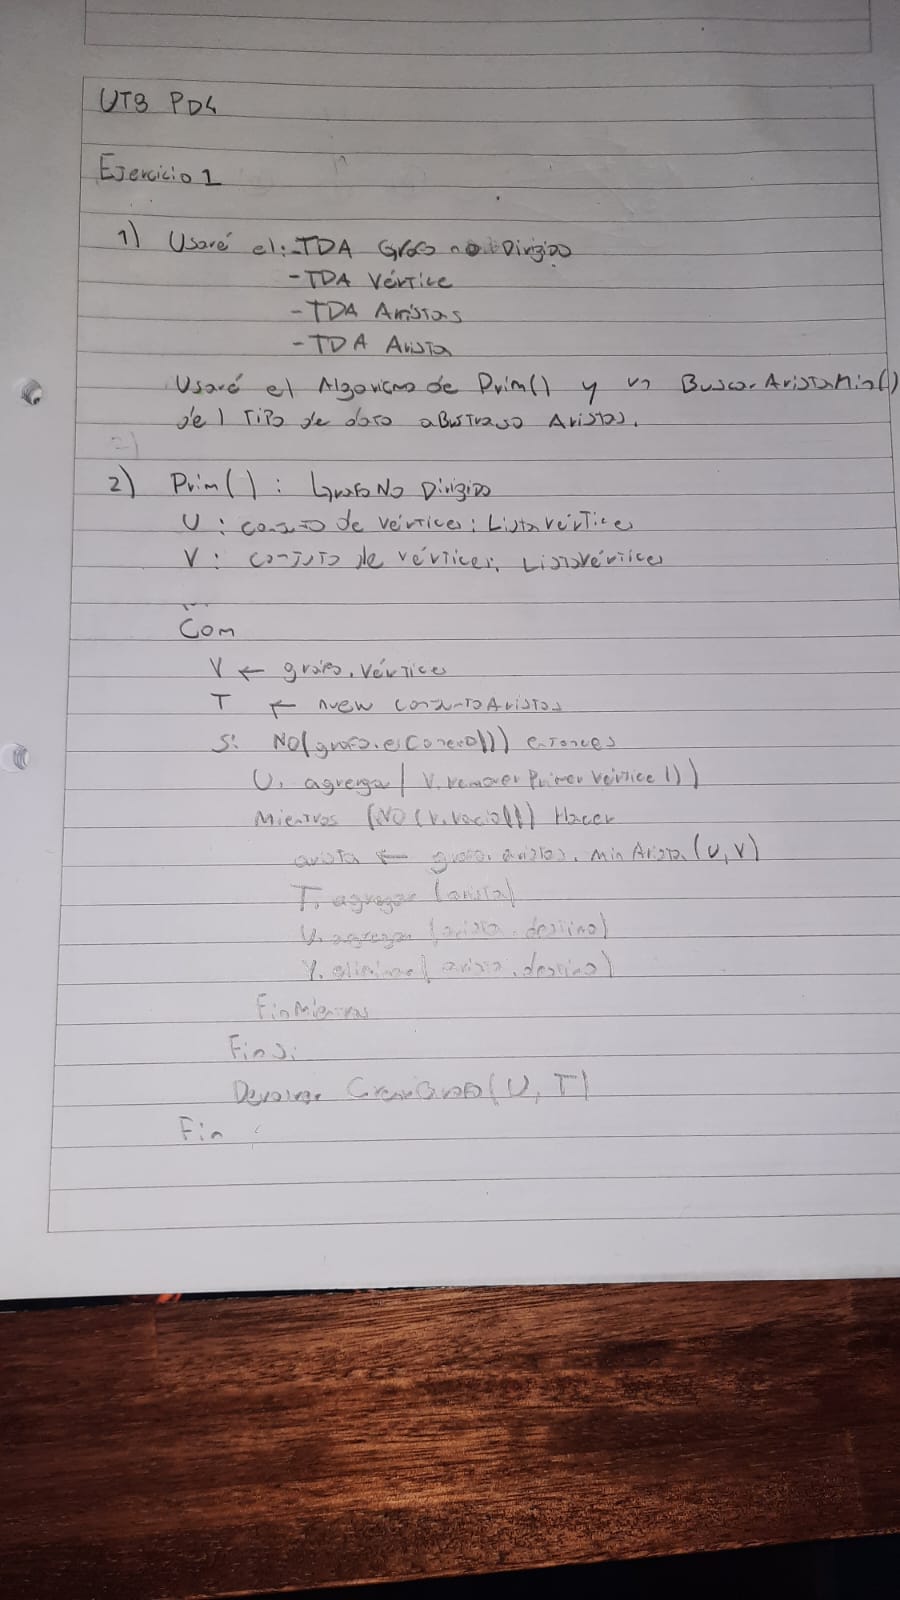 UT3 PD4
Ejercicio 1
1) Usaré el: -TDA Grafo no Dirigido
-TDA Vértice
-TDA Aristas
-TDA Arista
Usaré el Algoritmo de Prim() y un BuscarAristaMin()
del Tipo de dato abstracto Aristas.
2)
2) Prim() : GrafoNo Dirigido
U : conjunto de vértices: ListaVértices
V : conjunto de vértices: ListaVértices
...
Com
V ← grafo.vértices
T ← new conjuntoAristas
Si NO(grafo.esConexo()) entonces
U. agrega( V.remover Primer Vértice())
Mientras (NO (V.vacio())) Hacer
arista ← grafo.aristas.minArista(U,V)
T. agregar (arista)
U. agregar (arista.destino)
V. eliminar( arista.destino)
FinMientras
FinSi
Devolver CrearGrafo(U, T)
Fin